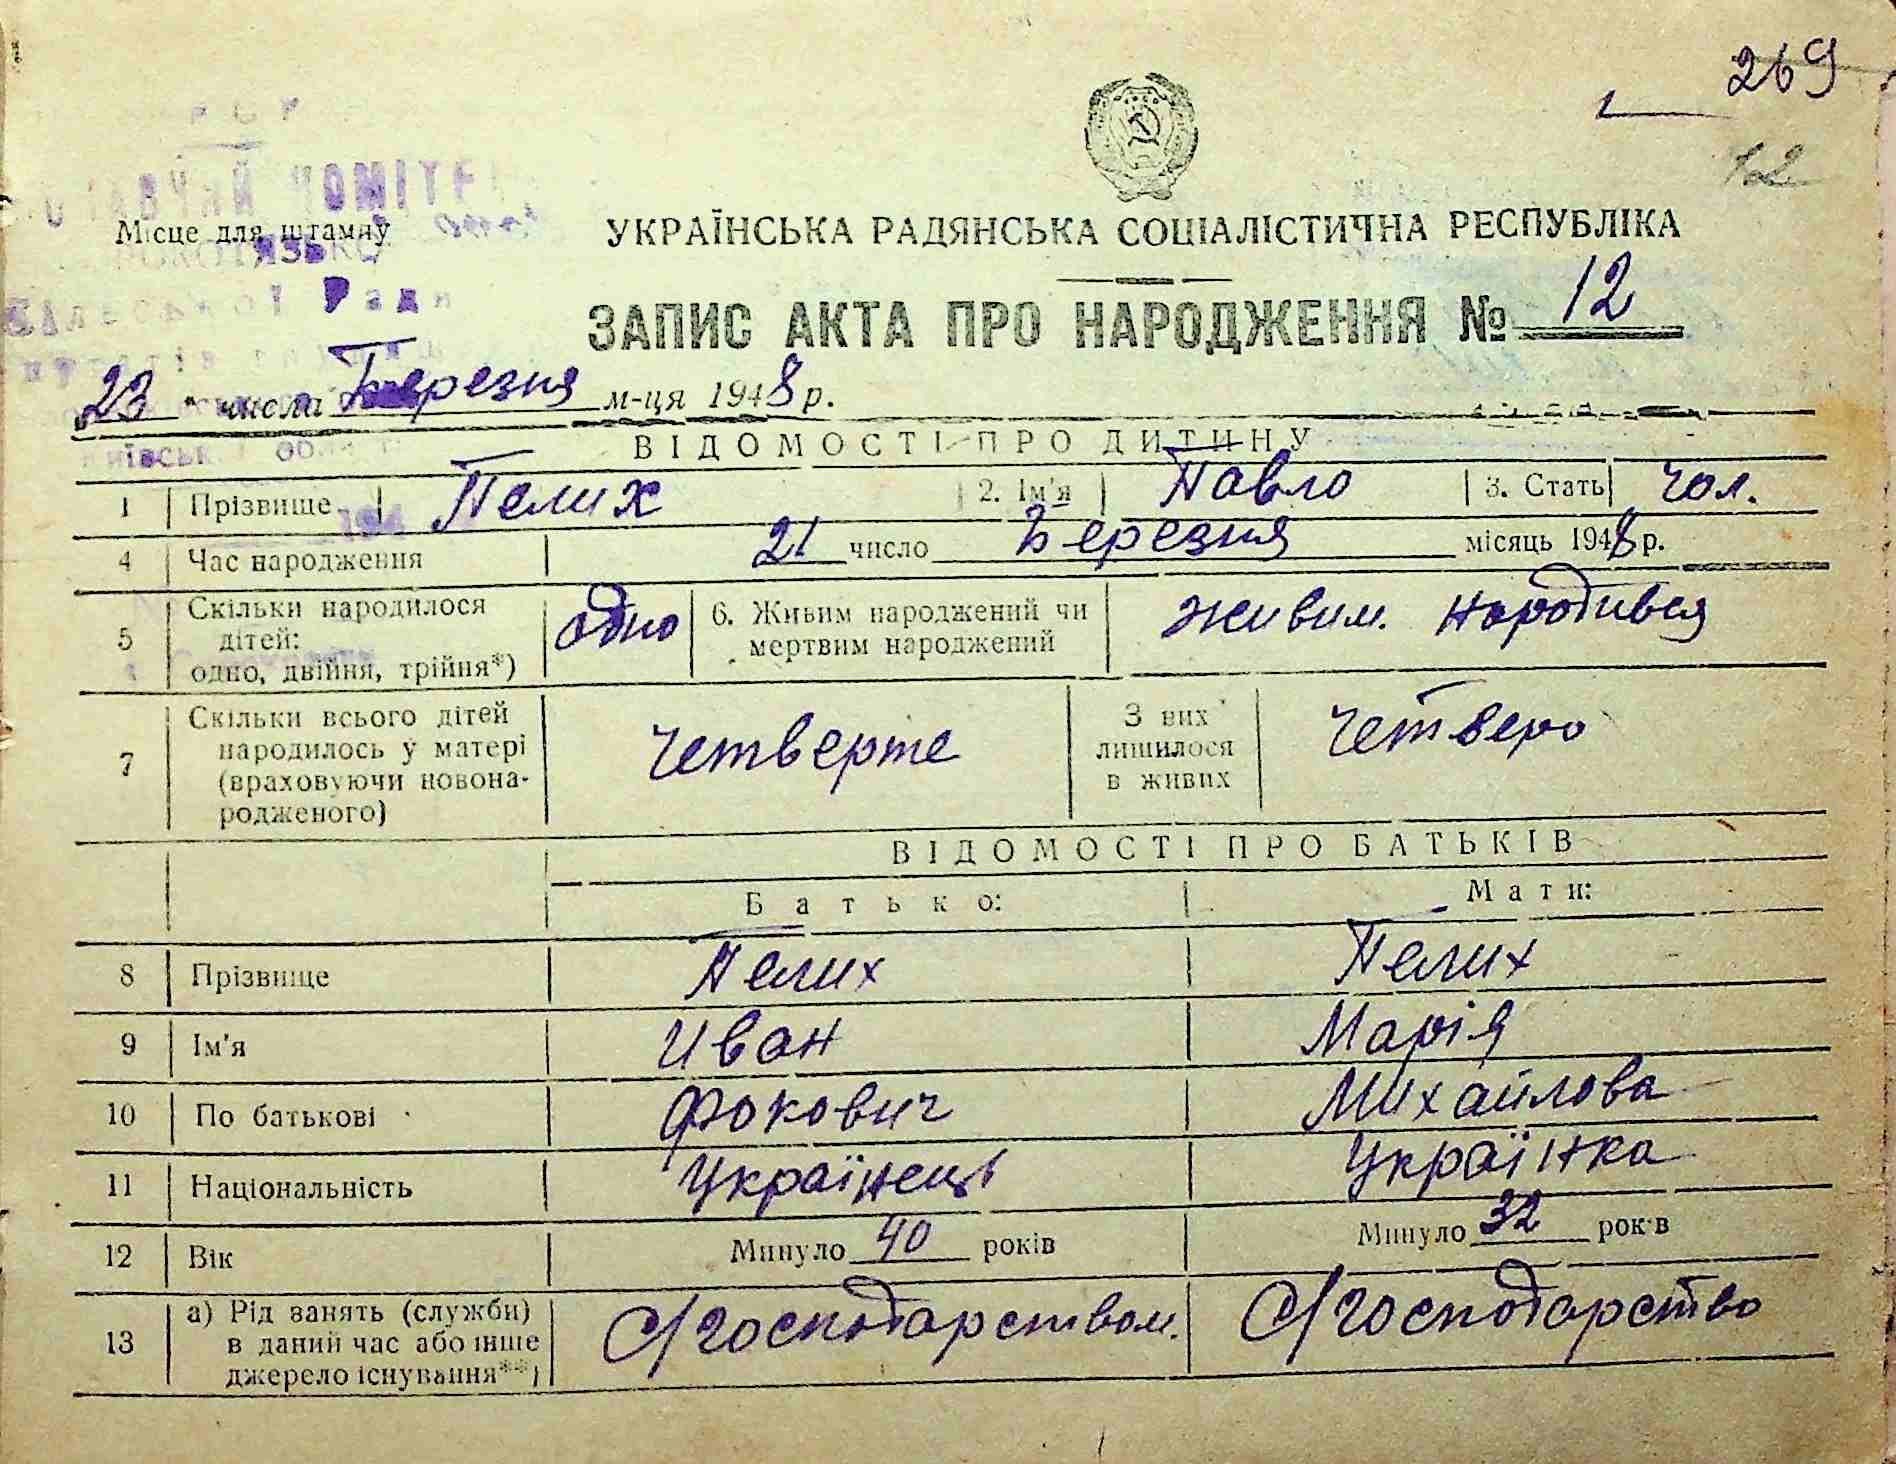 269
12
Місце для штампу
УКРАЇНСЬКА РАДЯНСЬКА СОЦІАЛІСТИЧНА РЕСПУБЛІКА
ЗАПИС АКТА ПРО НАРОДЖЕННЯ № 12
23 " числа Березня м-ця 1948 р.
ВІДОМОСТІ ПРО ДИТИНУ
1 Прізвище Пелих 2. Ім'я Павло 3. Стать чол.
4 Час народження 21 число Березня місяць 1948 р.
5 Скільки народилося дітей: одно, двійня, трійня*) одно 6. Живим народжений чи мертвим народжений живим. народився
7 Скільки всього дітей народилось у матері (враховуючи новонародженого) четверте З них лишилося в живих четверо
ВІДОМОСТІ ПРО БАТЬКІВ
Батько: Мати:
8 Прізвище Пелих Пелих
9 Ім'я Иван Марія
10 По батькові Фокович Михайлова
11 Національність Українець Українка
12 Вік Минуло 40 років Минуло 32 років
13 а) Рід занять (служби) в даний час або інше джерело існування**) С/господарством. С/господарство